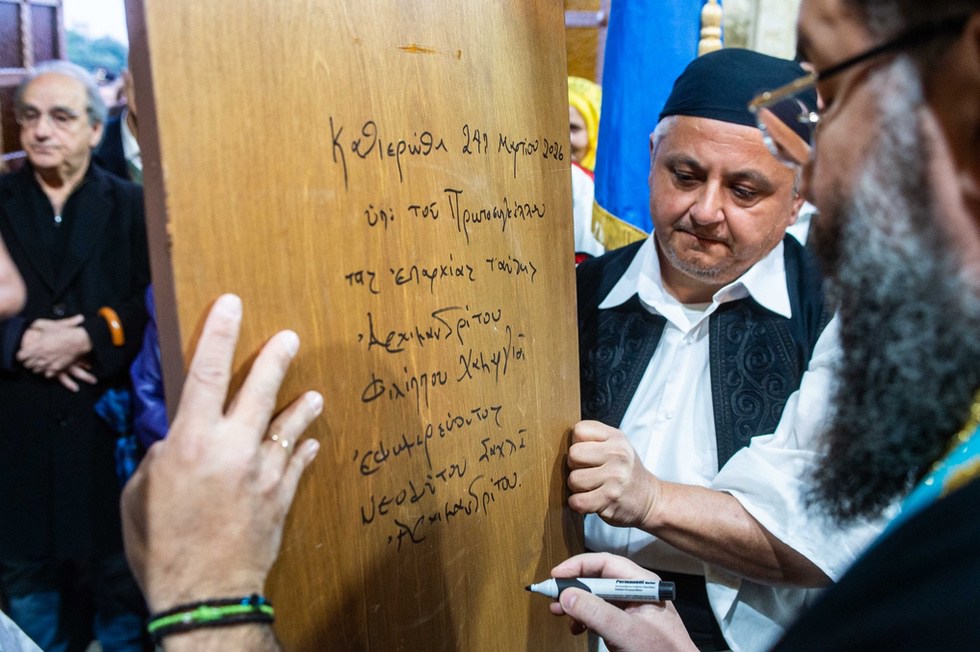 Καθιερώθη 24η Μαρτίου 2026
ὑπὸ τοῦ Πρωτοσυγκέλλου
τῆς ἐπαρχίας ταύτης
Ἀρχιμανδρίτου
Φιλίππου Χαμαργιᾶ
ἐφημερεύοντος
Νεοφύτου Σαχλῆ
Ἀρχιμανδρίτου.
Permanent Marker